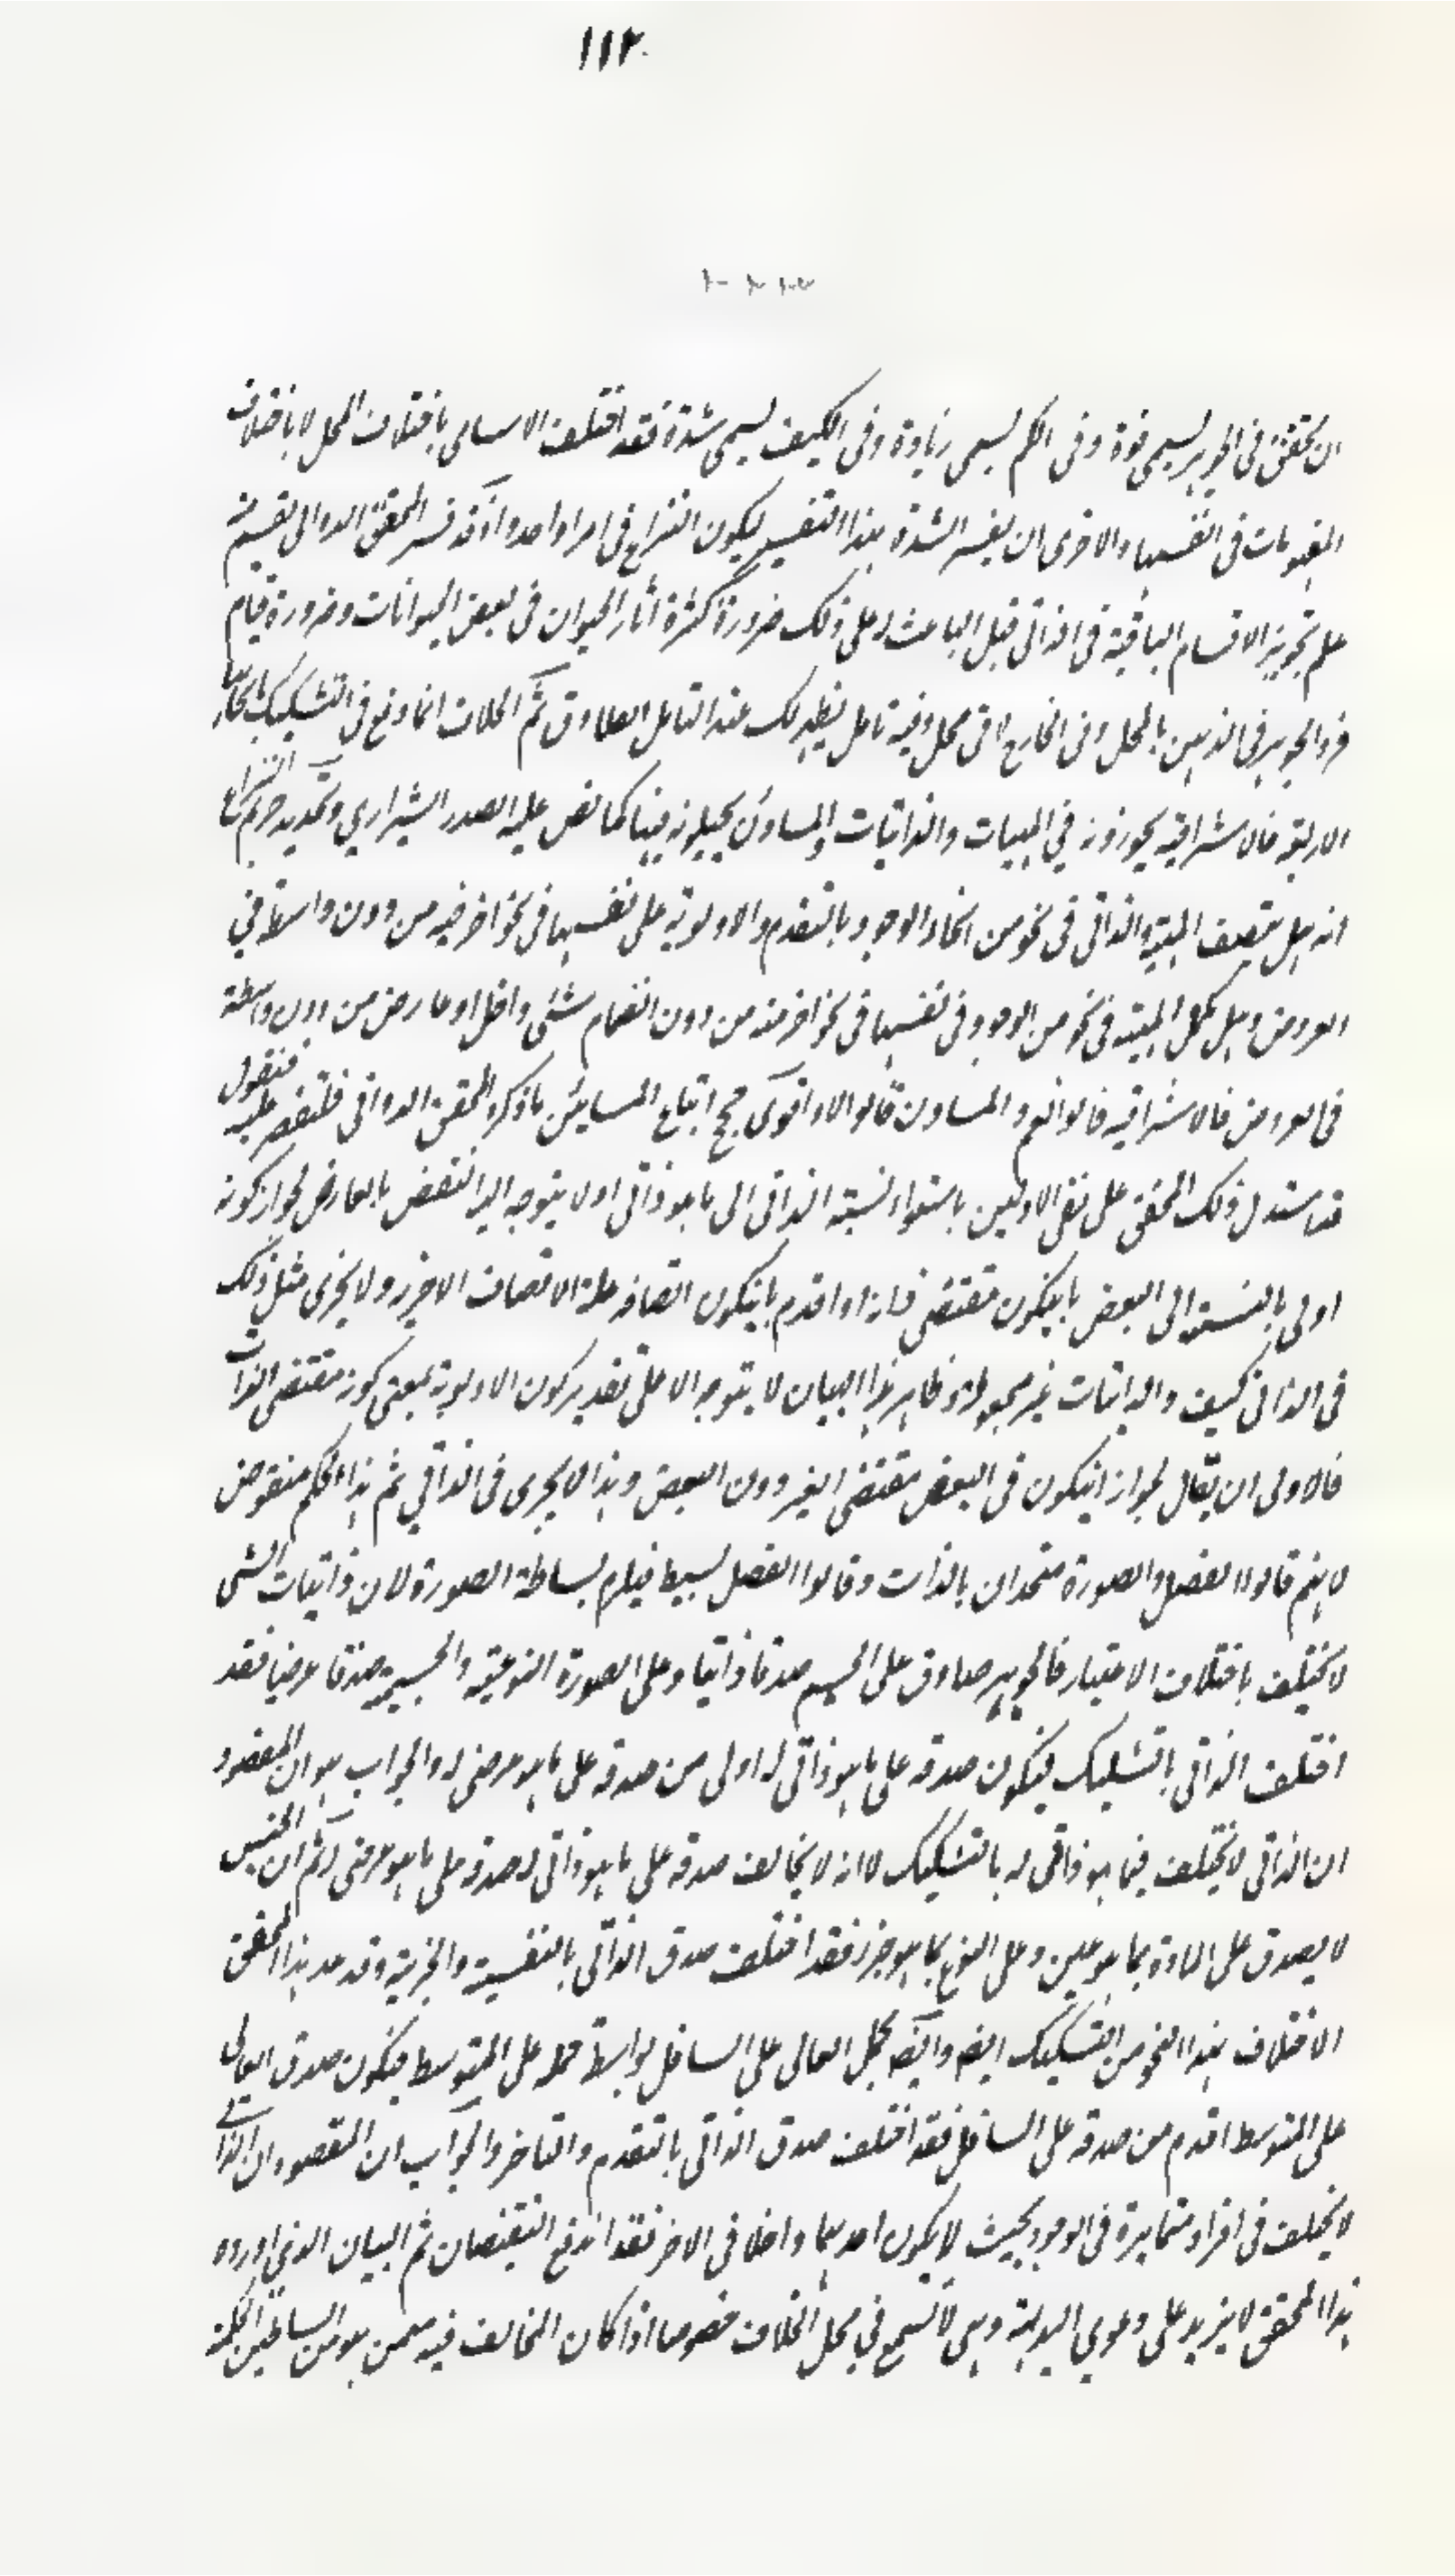 ١١٢
ان تحقق فى الجوهر يسمى قوة وفى الكم يسمى زيادة وفى الكيف يسمى شدة فقد اختلف الاسامى باختلاف المحل لا باختلاف
المفهومات فى انفسها والاحرى ان يفسر الشدة بهذا التفسير ليكون النزاع فى امر واحد وا قد فسر المحقق الدوانى
علم تجويز الاقسام الباقية فى الذاتى قبل الباعث له على ذلك ضرورة كثرة اثار الحيوان فى بعض الحيوانات وضرورة قيام
فرد الجوهر فى الذهن بالمحل وفى الخارج لا فى محل وفيه تامل يظهر لك عند التامل الصادق ثم الخلاف انما وقع فى التشكيك
الاربعة فالاشراقية يجوزونه في المهيات والذاتيات والمشاؤن يحيلونه فيها كما نص عليه الصدر الشيرازي وتحديد حريم النزاع
انه هل يتصف المهية والذاتى فى نحو من انحاء الوجود بالتقدم والاولوية على نفسها فى نحو اخر فيه من دون واسطة في
العروض وهل تكمل المهية فى نحو من الوجود فى نفسها فى نحو اخر منه من دون انضمام شئى داخل او عارض من دون واسطة
فى العروض فالاشراقية قالوا نعم والمشاون قالوا لا واقوى حجج اتباع المشائين ما ذكره المحقق الدوانى فلنقتصر عليه فنقول
قد استدل ذلك المحقق على نفى الاولين باستواء نسبة الذاتى الى ما هو ذاتى له ولا يتوجه اليه النقض بالعارض لجواز كونه
اولى بالنسبة الى البعض بان يكون مقتضى ذاته او اقدم بان يكون اتصافه علة لاتصاف الاخر ولا يجرى مثل ذلك
فى الذاتى كيف والذاتيات غير مجعولة وظاهر هذا البيان لا يتوجه الا على تقدير كون الاولوية بمعنى كونه مقتضى الذات
فالاولى ان يقال لجواز ان يكون فى البعض مقتضى الغير دون البعض وهذا لا يجرى فى الذاتي ثم هذا الحكم منقوض
لانهم قالوا الفصل والصورة متحدان بالذات وقالوا الفصل بسيط فيلزم بساطة الصورة لان ذاتيات الشى
لا يختلف باختلاف الاعتبار فالجوهر صادق على الجسم صدقا ذاتيا وعلى الصورة النوعية والجسمية صدقا عرضيا فقد
اختلف الذاتى بالتشكيك فيكون صدقه على ما هو ذاتى له اولى من صدقه على ما هو عرضى له والجواب هو ان المقصود
ان الذاتى لا يختلف فيما هو ذاتى له بالتشكيك لا انه لا يخالف صدقه على ما هو ذاتى له صدقه على ما هو عرضى له ثم ان الجنس
لا يصدق على المادة بما هو عين وعلى النوع بما هو جزء فقد اختلف صدق الذاتى بالنفسية والجزئية وقد عد هذا المحقق
الاختلاف بهذا النحو من التشكيك ايضا وايضا يحمل العالى على السافل بواسطة حمله على المتوسط فيكون صدق العالى
على المتوسط اقدم من صدقه على السافل فقد اختلف صدق الذاتى بالتقدم والتاخر والجواب ان المقصود ان الذاتى
لا يختلف فى افراد متمايزة فى الوجود بحيث لا يكون احدهما داخلا فى الاخر فقد اندفع النقضان ثم البيان الذى اورده
هذا المحقق لا يزيد على دعوى البداهة وهى لا تسمع في محل الخلاف خصوصا اذا كان المخالف فيه ممن هو من